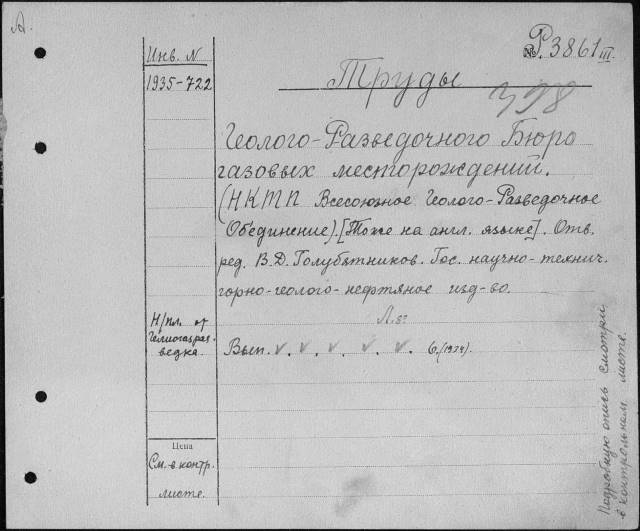 А.
Инв. N
1935-722
№ Р.3861 III
Труды
398
Геолого-Разведочного Бюро
газовых месторождений.
(НКТП Всесоюзное Геолого-Разведочное
Объединение). [Тоже на англ. языке]. Отв.
ред. В.Д. Голубятников. Гос. научно-технич.
горно-геолого-нефтяное изд-во.
Н/пл. от
Гелиогазраз-
ведка.
Вып. v. v. v. v. v. 6.(1934)
Цена
См. в контр.
листе.
Подробную опись смотри
в контрольном листе.